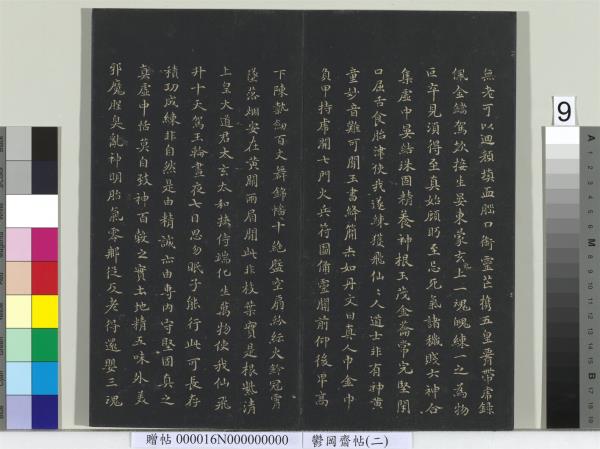 無老可以迴顏填血腦口銜靈芒攜五皇帶虎籙
佩金鐺駕欻接生宴東蒙玄上一魂魄練一之為物
叵卒見須得至真始顧眄至忌死氣諸穢賤六神合
集虛中宴結珠固精養神根玉茂金籥常完堅閉
口屈舌食胎津使我遂練獲飛仙人道士非有神黃
童妙音難可聞玉書絳簡赤如丹文曰真人巾金巾
負甲持虎開七門火兵符圖備靈關前仰後卑高
下陳執劍百丈舞錦幡十絕盤空扇紛紜火鈴冠霄
墜落烟安在黃闕兩眉間此非枝葉實是根紫清
上皇大道君太玄太和俠侍端化生萬物使我仙飛
升十天駕玉輪晝夜七日思勿眠子能行此可長存
積功成練非自然是由精誠亦由專內守堅固真之
真虛中恬淡自致神百穀之實土地精五味外美
邪魔腥臭亂神明胎氣零那從反老得還嬰三魂
9
贈帖 000016N000000000
鬱岡齋帖(二)